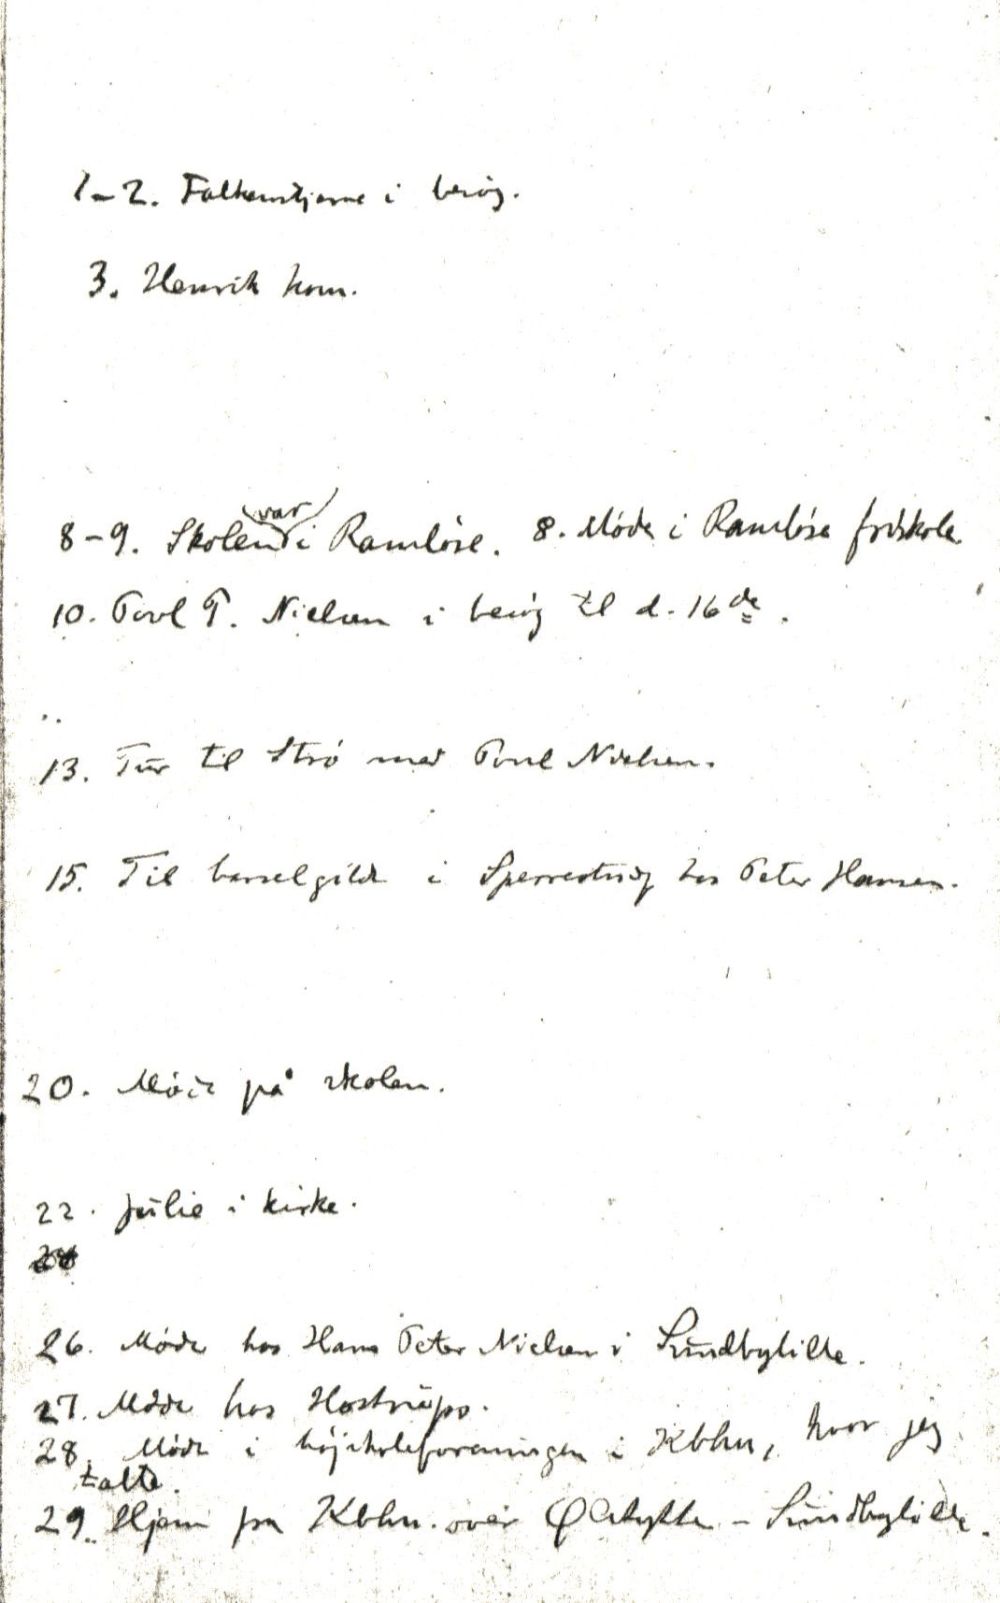 1-2. Falkenstjerne i besög.
3. Henrik kom.
8-9. Skolen (var) i Ramløse. 8. Møde i Ramløse friskole
10. Povl P. Nielsen i besög til d. 16de.
13. Tur til Strø med Povl Nielsen.
15. Til barselgilde i Sperrestrup hos Peter Hansen.
20. Møde på skolen.
22. Julie i kirke.
26. Møde hos Hans Peter Nielsen i Sundbylille.
27. Møde hos Hostrups.
28. Møde i højskoleforeningen i Kbhn, hvor jeg
talte.
29. Hjem fra Kbhn. over Ølstykke - Sundbylille.